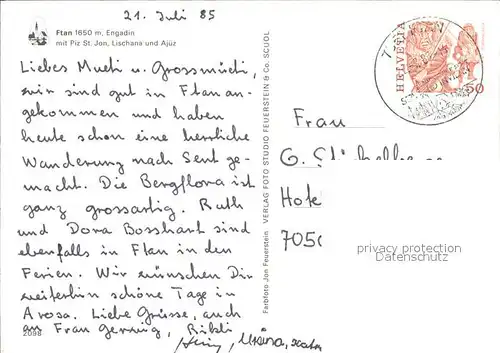 21. Juli 85
Ftan 1650 m, Engadin
mit Piz St. Jon, Lischana und Ajüz
Liebes Mueti u. Grossmüeti,
wir sind gut in Ftan an-
gekommen und haben
heute schon eine herrliche
Wanderung nach Sent ge-
macht. Die Bergflora ist
ganz grossartig. Ruth
und Dora Bosshart sind
ebenfalls in Ftan in den
Ferien. Wir wünschen Dir
weiterhin schöne Tage in
Arosa. Liebe Grüsse, auch
an Frau
2098
Farbfoto Jon Feuerstein VERLAG FOTO STUDIO FEUERSTEIN & CO. SCUOL
HELVETIA
50
Frau
G.
Hote
7050
privacy protection
Datenschutz